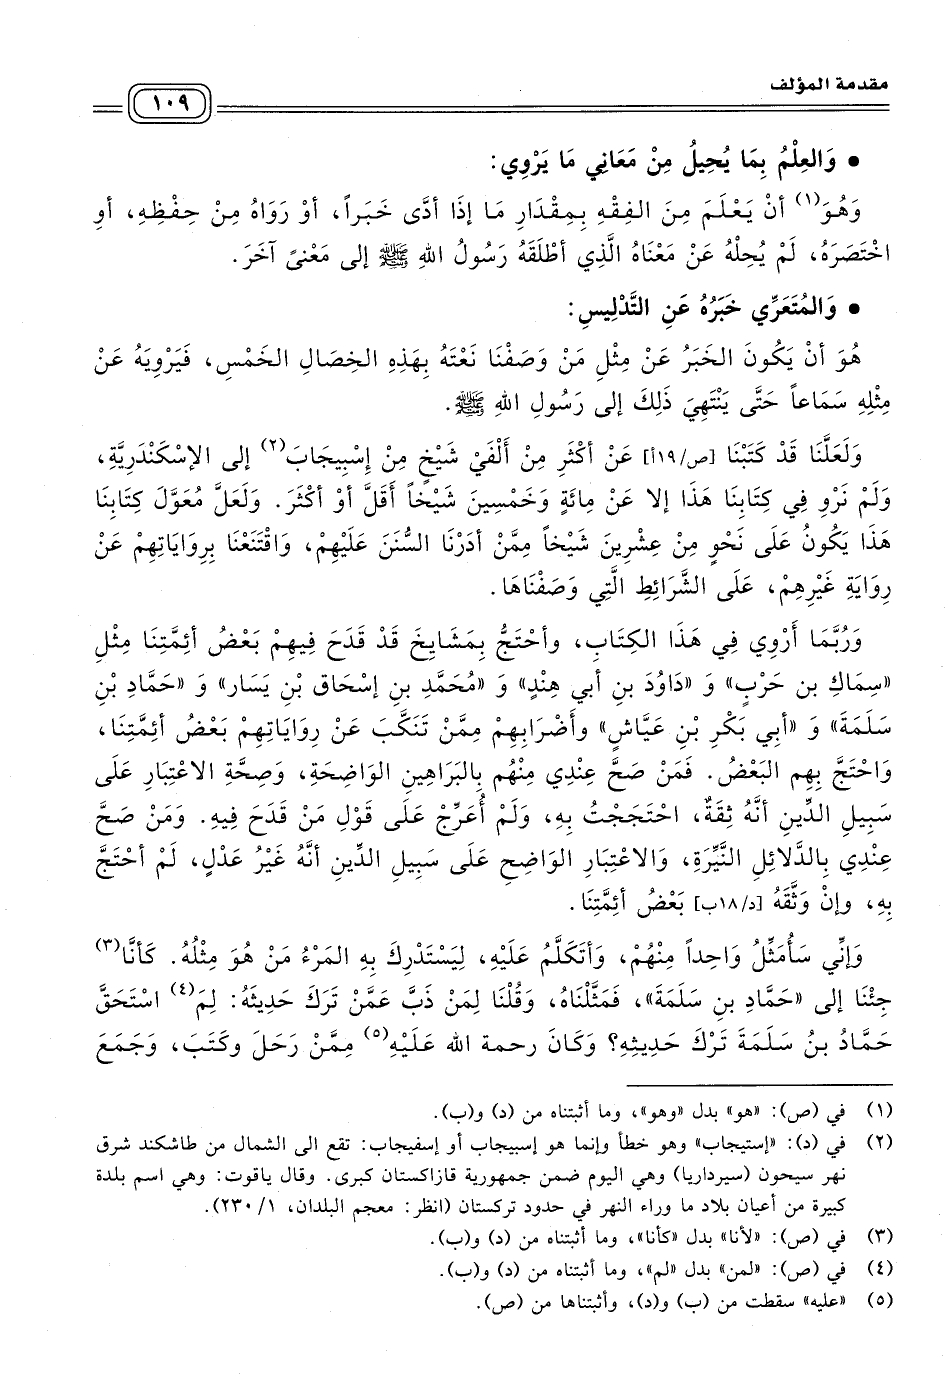 مقدمة المؤلف
١٠٩
• وَالعِلْمُ بِمَا يُحِيلُ مِنْ مَعَانِي مَا يَرْوِي:
وَهُوَ(١) أنْ يَعْلَمَ مِنَ الفِقْهِ بِمِقْدَارِ مَا إذَا أدَّى خَبَراً، أوْ رَوَاهُ مِنْ حِفْظِهِ، أوِ
اخْتَصَرَهُ، لَمْ يُحِلْهُ عَنْ مَعْنَاهُ الَّذِي أطْلَقَهُ رَسُولُ اللهِ ﷺ إلى مَعْنىً آخَرَ.
• وَالمُتَعَرِّي خَبَرُهُ عَنِ التَّدْلِيسِ:
هُوَ أنْ يَكُونَ الخَبَرُ عَنْ مِثْلِ مَنْ وَصَفْنَا نَعْتَهُ بِهَذِهِ الخِصَالِ الخَمْسِ، فَيَرْوِيَهُ عَنْ
مِثْلِهِ سَمَاعاً حَتَّى يَنْتَهِيَ ذَلِكَ إلى رَسُولِ اللهِ ﷺ.
وَلَعَلَّنَا قَدْ كَتَبْنَا [ص/١٩أ] عَنْ أكْثَرِ مِنْ ألْفَيْ شَيْخٍ مِنْ إسْبِيجَابَ(٢) إلى الإسْكَنْدَرِيَّةِ،
وَلَمْ نَرْوِ فِي كِتَابِنَا هَذَا إلا عَنْ مِائَةٍ وَخَمْسِينَ شَيْخاً أقَلَّ أوْ أكْثَرَ. وَلَعَلَّ مُعَوَّلَ كِتَابِنَا
هَذَا يَكُونُ عَلَى نَحْوٍ مِنْ عِشْرِينَ شَيْخاً مِمَّنْ أدَرْنَا السُّنَنَ عَلَيْهِمْ، وَاقْتَنَعْنَا بِرِوَايَاتِهِمْ عَنْ
رِوَايَةِ غَيْرِهِمْ، عَلَى الشَّرَائِطِ الَّتِي وَصَفْنَاهَا.
وَرُبَّمَا أرْوِي فِي هَذَا الكِتَابِ، وأحْتَجُّ بِمَشَايِخَ قَدْ قَدَحَ فِيهِمْ بَعْضُ أئِمَّتِنَا مِثْلِ
«سِمَاكِ بن حَرْبٍ» وَ «دَاوُدَ بنِ أبي هِنْدٍ» وَ «مُحَمَّدِ بنِ إسْحَاق بْنِ يَسَار» وَ «حَمَّادِ بْنِ
سَلَمَةَ» وَ «أبِي بَكْرِ بْنِ عَيَّاشٍ» وأضْرَابِهِمْ مِمَّنْ تَنَكَّبَ عَنْ رِوَايَاتِهِمْ بَعْضُ أئِمَّتِنَا،
وَاحْتَجَّ بِهِم البَعْضُ. فَمَنْ صَحَّ عِنْدِي مِنْهُم بِالبَرَاهِينِ الوَاضِحَةِ، وَصِحَّةِ الاعْتِبَارِ عَلَى
سَبِيلِ الدِّينِ أنَّهُ ثِقَةٌ، احْتَجَجْتُ بِهِ، وَلَمْ أُعَرِّجْ عَلَى قَوْلِ مَنْ قَدَحَ فِيهِ. وَمَنْ صَحَّ
عِنْدِي بِالدَّلائِلِ النَّيِّرَةِ، وَالاعْتِبَارِ الوَاضِحِ عَلَى سَبِيلِ الدِّينِ أنَّهُ غَيْرُ عَدْلٍ، لَمْ أحْتَجَّ
بِهِ، وإنْ وَثَّقَهُ [د/١٨ب] بَعْضُ أئِمَّتِنَا.
وَإنِّي سَأُمَثِّلُ وَاحِداً مِنْهُمْ، وَأتَكَلَّمُ عَلَيْهِ، لِيَسْتَدْرِكَ بِهِ المَرْءُ مَنْ هُوَ مِثْلُهُ. كَأنَّا(٣)
جِئْنَا إلى «حَمَّادِ بنِ سَلَمَةَ»، فَمَثَّلْنَاهُ، وَقُلْنَا لِمَنْ ذَبَّ عَمَّنْ تَرَكَ حَدِيثَهُ: لِمَ(٤) اسْتَحَقَّ
حَمَّادُ بنُ سَلَمَةَ تَرْكَ حَدِيثِهِ؟ وَكَانَ رحمة الله عَلَيْهِ(٥) مِمَّنْ رَحَلَ وكَتَبَ، وَجَمَعَ
(١) في (ص): «هو» بدل «وهو»، وما أثبتناه من (د) و(ب).
(٢) في (د): «إستيجاب» وهو خطأ وإنما هو إسبيجاب أو إسفيجاب: تقع الى الشمال من طاشكند شرق
نهر سيحون (سيرداريا) وهي اليوم ضمن جمهورية قازاكستان كبرى. وقال ياقوت: وهي اسم بلدة
كبيرة من أعيان بلاد ما وراء النهر في حدود تركستان (انظر: معجم البلدان، ١/ ٢٣٠).
(٣) في (ص): «لأنا» بدل «كأنا»، وما أثبتناه من (د) و(ب).
(٤) في (ص): «لمن» بدل «لم»، وما أثبتناه من (د) و(ب).
(٥) «عليه» سقطت من (ب) و(د)، وأثبتناها من (ص).